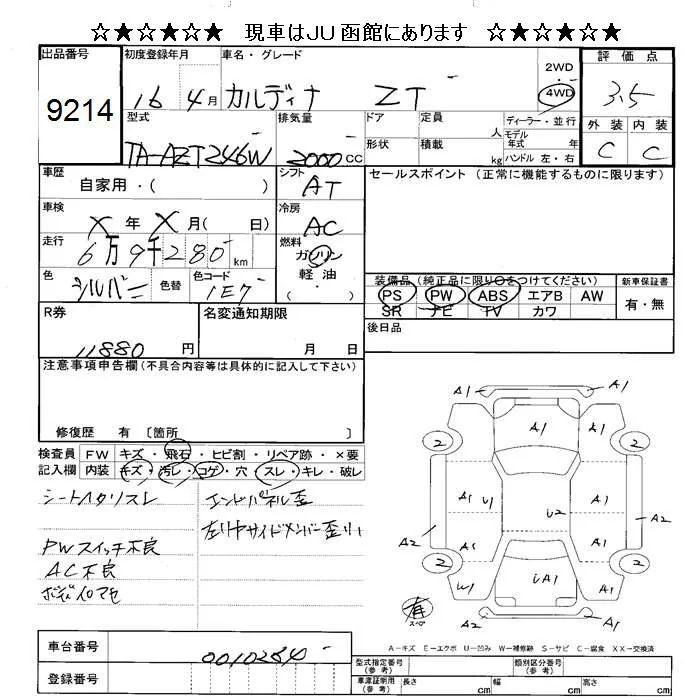 ☆★☆★☆★ 現車はJU函館にあります ★☆★☆★☆
出品番号
9214
初度登録年月
16 4月
車名・グレード
カルディナ ZT
2WD
4WD
評価点
3.5
型式
TA-AZT246W
排気量
2000 CC
ドア
定員
人
ディーラー・並行
形状
積載
kg
モデル年式 年
ハンドル 左・右
外装 内装
C C
車歴
自家用・( )
シフト
AT
セールスポイント (正常に機能するものに限ります)
車検
X 年 X 月( 日)
冷房
AC
走行
6万9千280 km
燃料
ガソリン
軽油
( ・ )
色
シルバー
色替
色コード
1E7
装備品(純正品に限り○をつけてください)
PS PW ABS エアB AW
SR ナビ TV カワ
新車保証書
有・無
R券
11880 円
名変通知期限
月 日
後日品
注意事項申告欄(不具合内容等は具体的に記入して下さい)
修復歴 有 〔箇所 〕
検査員 FW キズ・飛石・ヒビ割・リペア跡・×要
記入欄 内装 キズ・汚レ・コゲ・穴・スレ・キレ・破レ
シートヘタリスレ
エンドパネル歪
左リヤサイドメンバー歪
PWスイッチ不良
AC不良
ボディイロアセ
A1 A1
2 A1 2
A1 U1 U2 A1
A2 A1 A1 A2
2 2
W1 A1 A1
A2 A1
有
スペア
A-キズ E-エクボ U-凹み W-補修跡 S-サビ C-腐食 XX-交換済
車台番号
0010284
登録番号
型式指定番号(参考)
類別区分番号(参考)
車庫証明用(参考)
長さ cm 幅 cm 高さ cm